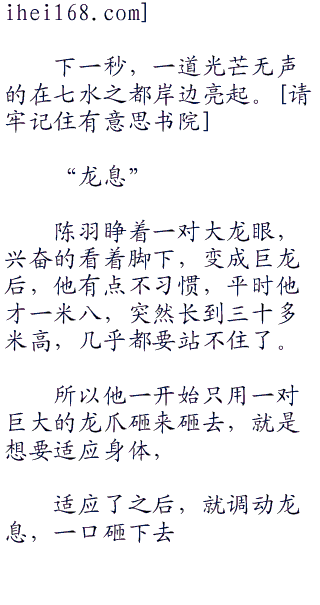 ihei168.com]
下一秒，一道光芒无声
的在七水之都岸边亮起。[请
牢记住有意思书院]
“龙息”
陈羽睁着一对大龙眼，
兴奋的看着脚下，变成巨龙
后，他有点不习惯，平时他
才一米八，突然长到三十多
米高，几乎都要站不住了。
所以他一开始只用一对
巨大的龙爪砸来砸去，就是
想要适应身体，
适应了之后，就调动龙
息，一口砸下去